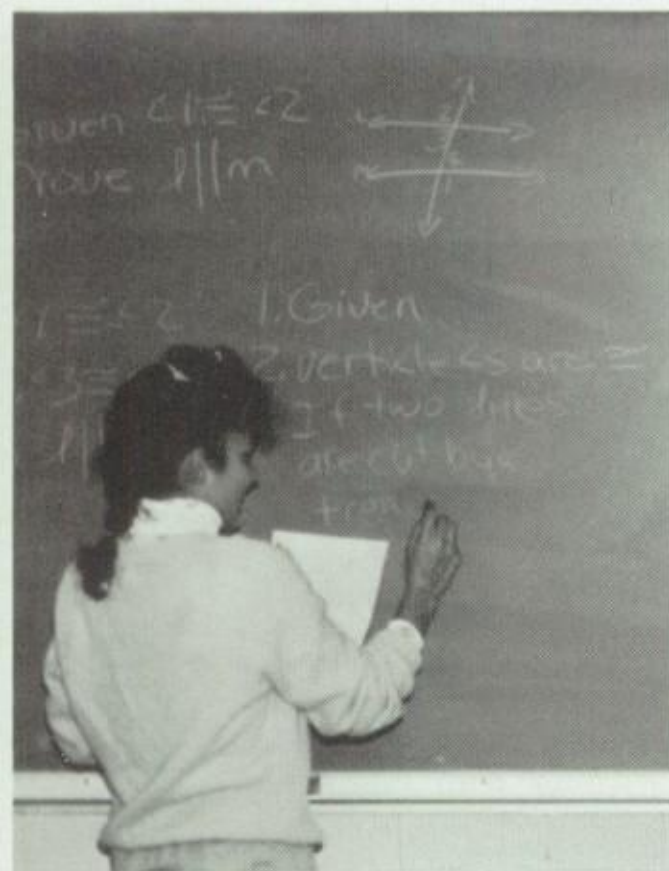 Given <1 ≅ <2
Prove l||m
1 ≅ <2 1. Given
<3 ≅ 2. verticle <s are ≅
l|| If two lines
are cut by a
tran